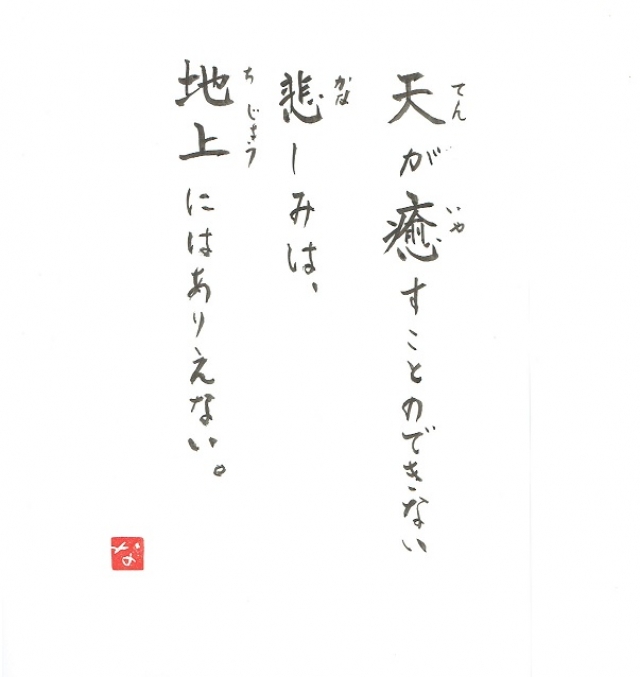 天が癒すことのできない
てん いや
悲しみは、
かな
地上にはありえない。
ち じょう
な